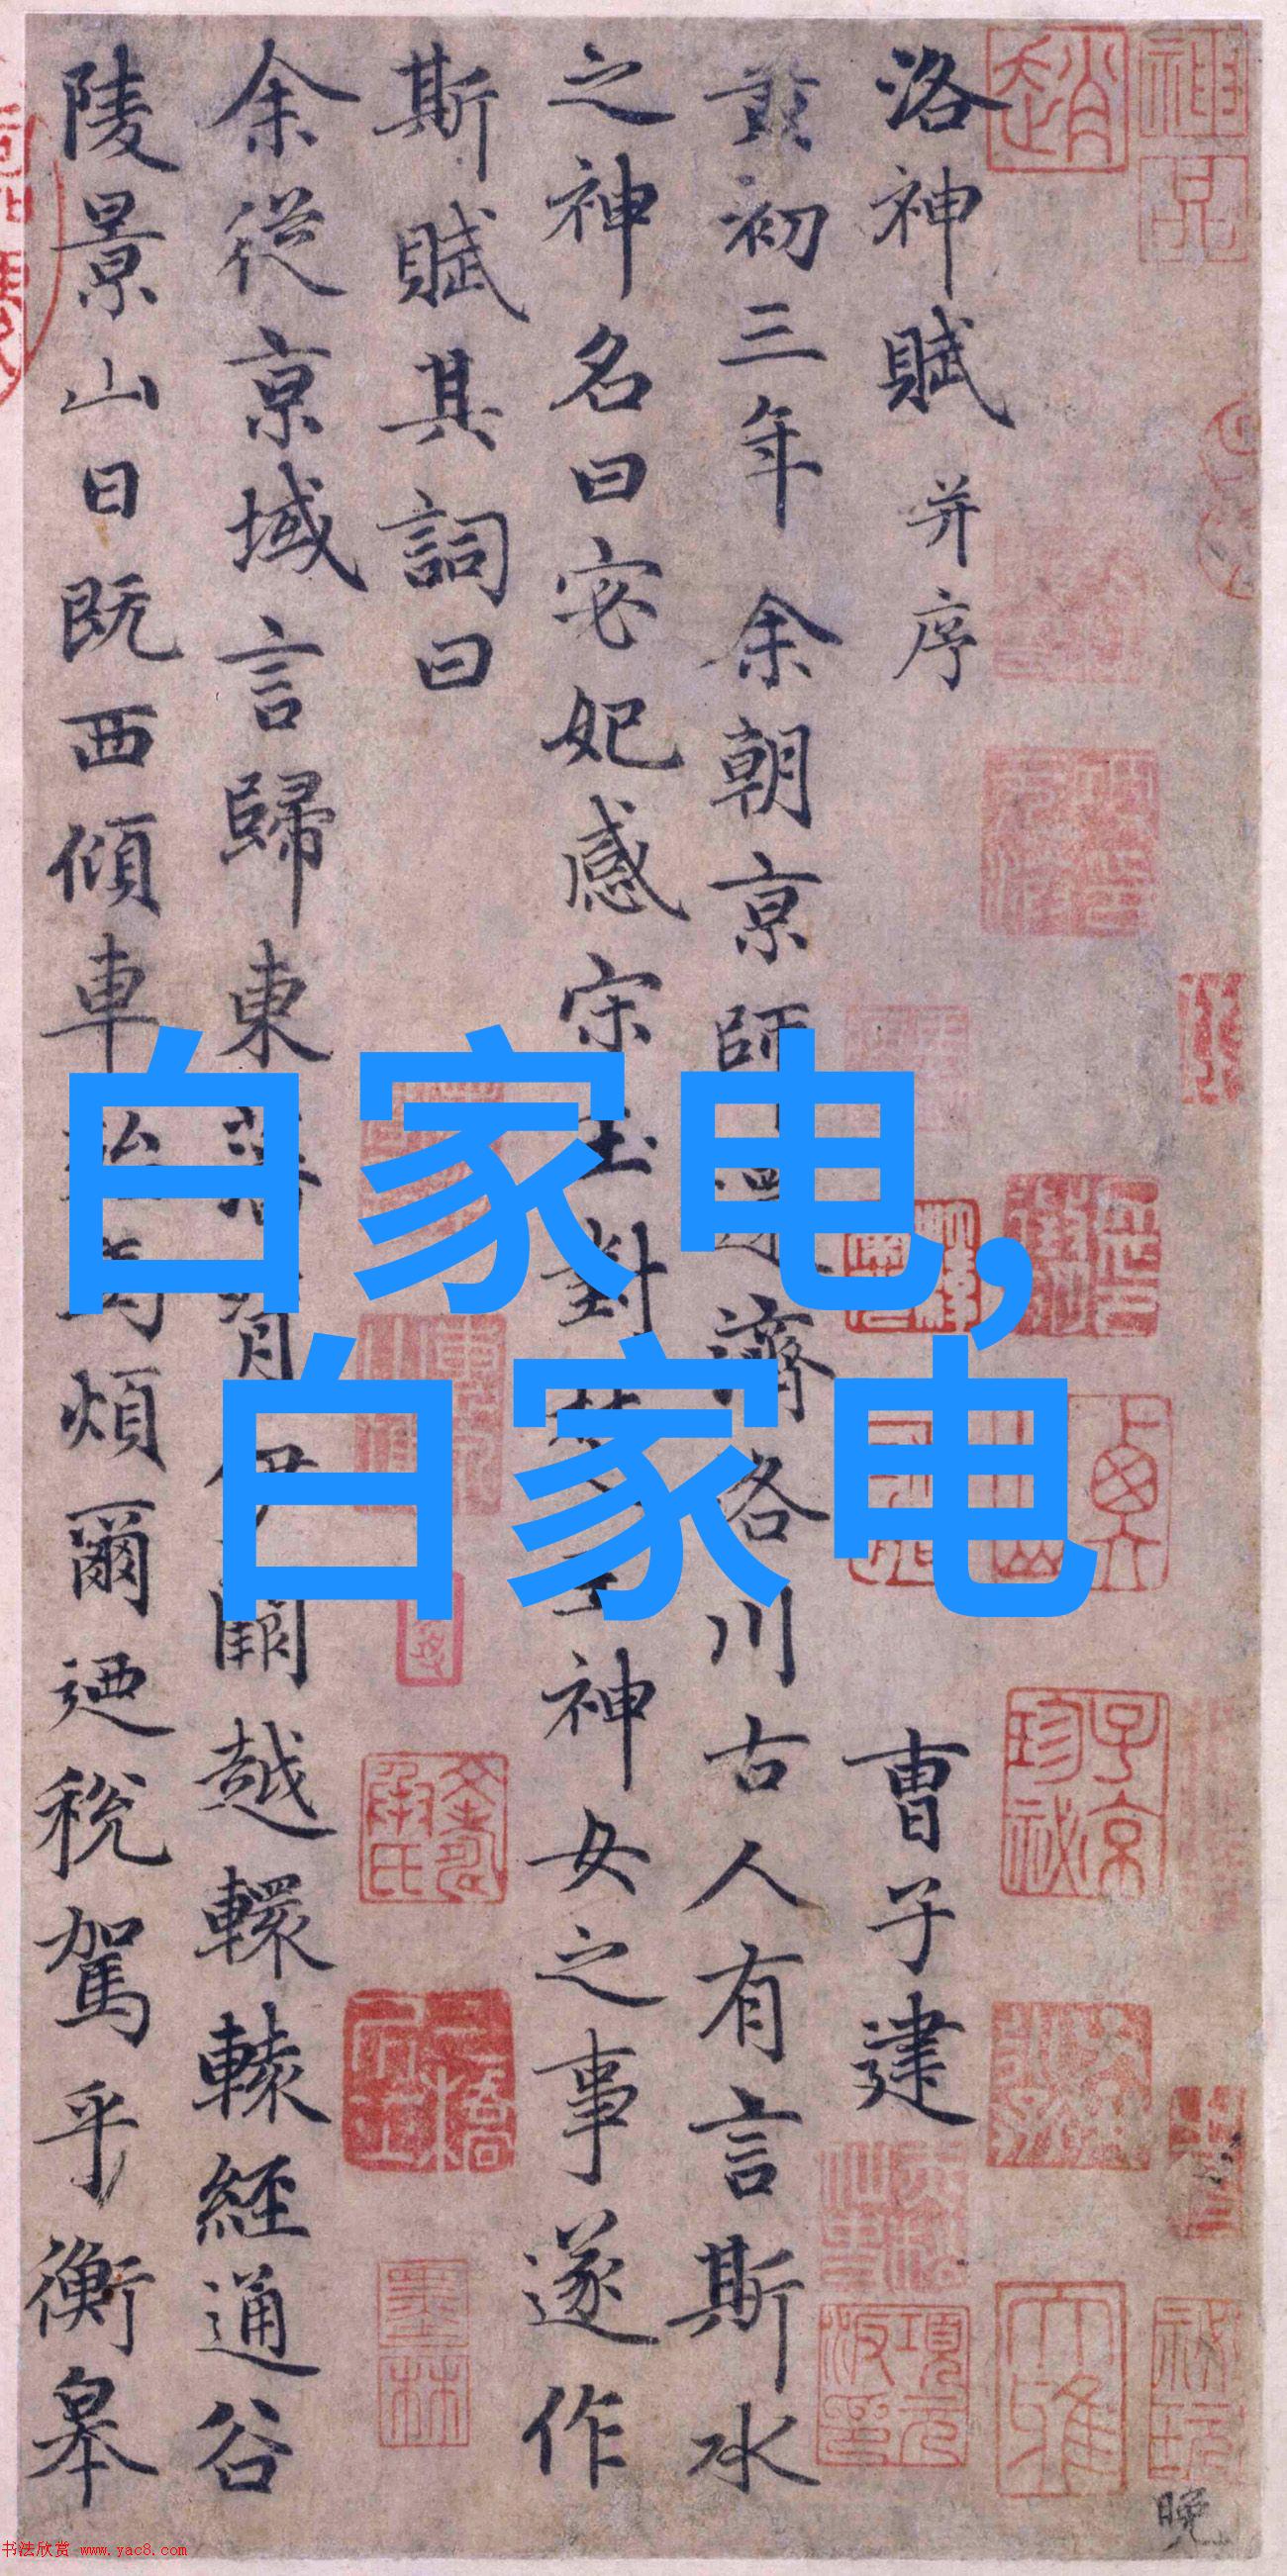 白家电,
白家电
洛神賦 并序 曹子建
黃初三年余朝京師還濟洛川古人有言斯水
之神名曰宓妃感宋玉對楚王神女之事遂作
斯賦其詞曰
余從京域言歸東藩背伊闕越轘轅經通谷
陵景山日既西傾車殆馬煩爾迺稅駕乎衡皋
趙
神品
子京珍祕
墨林
項元汴印
晚
书法欣赏 www.yac8.com